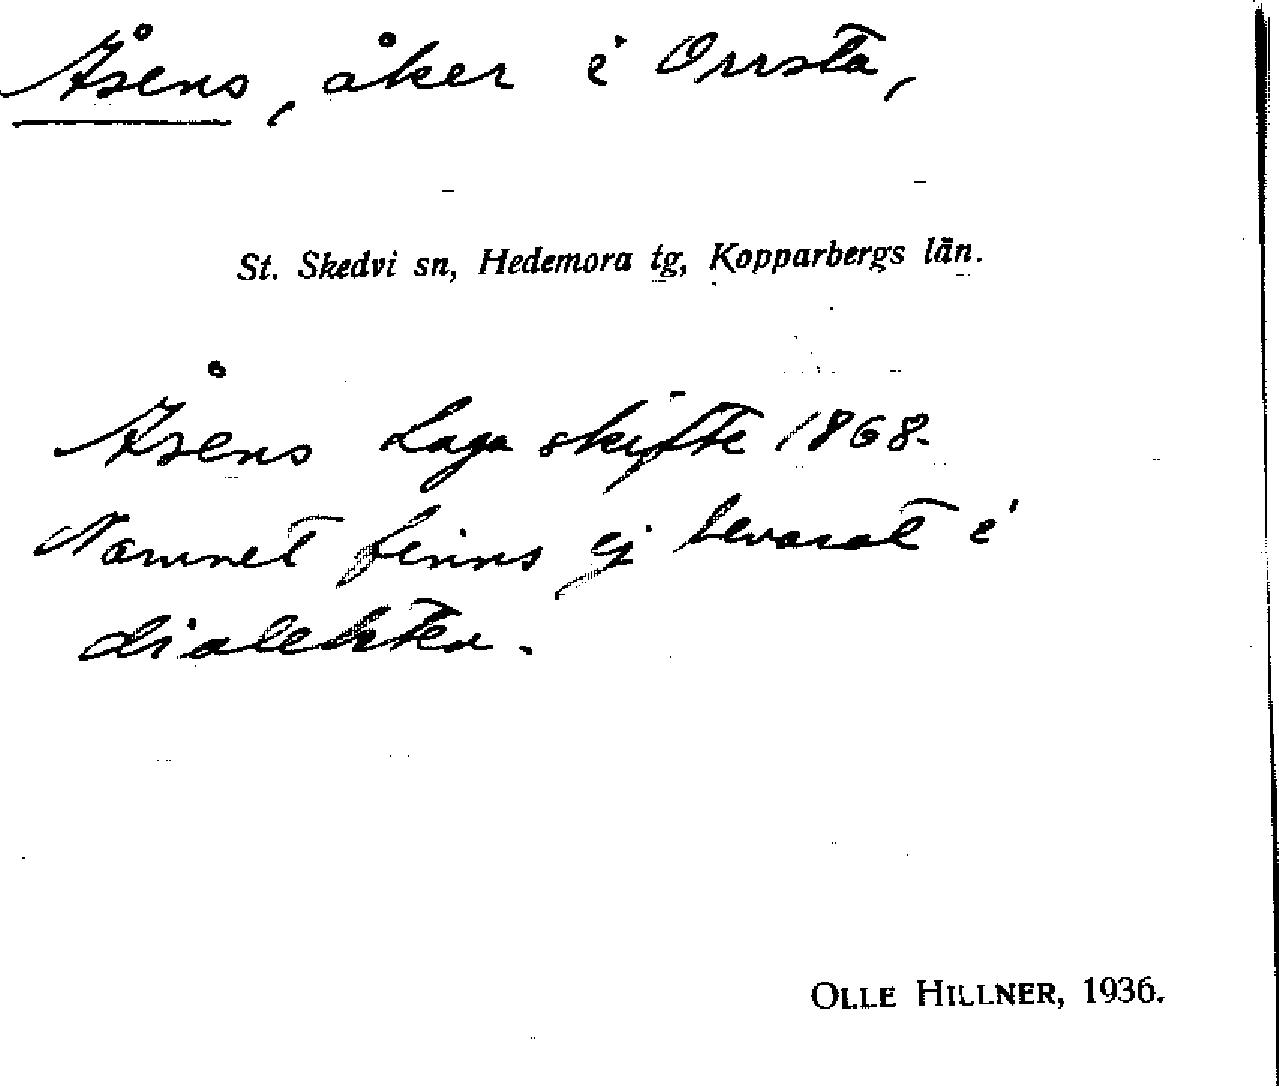 Åsens, åker i Orrsta,
St. Skedvi sn, Hedemora tg, Kopparbergs län.
Åsens Laga skifte 1868.
Namnet finns ej bevarat i
dialekten.
OLLE HILLNER, 1936.